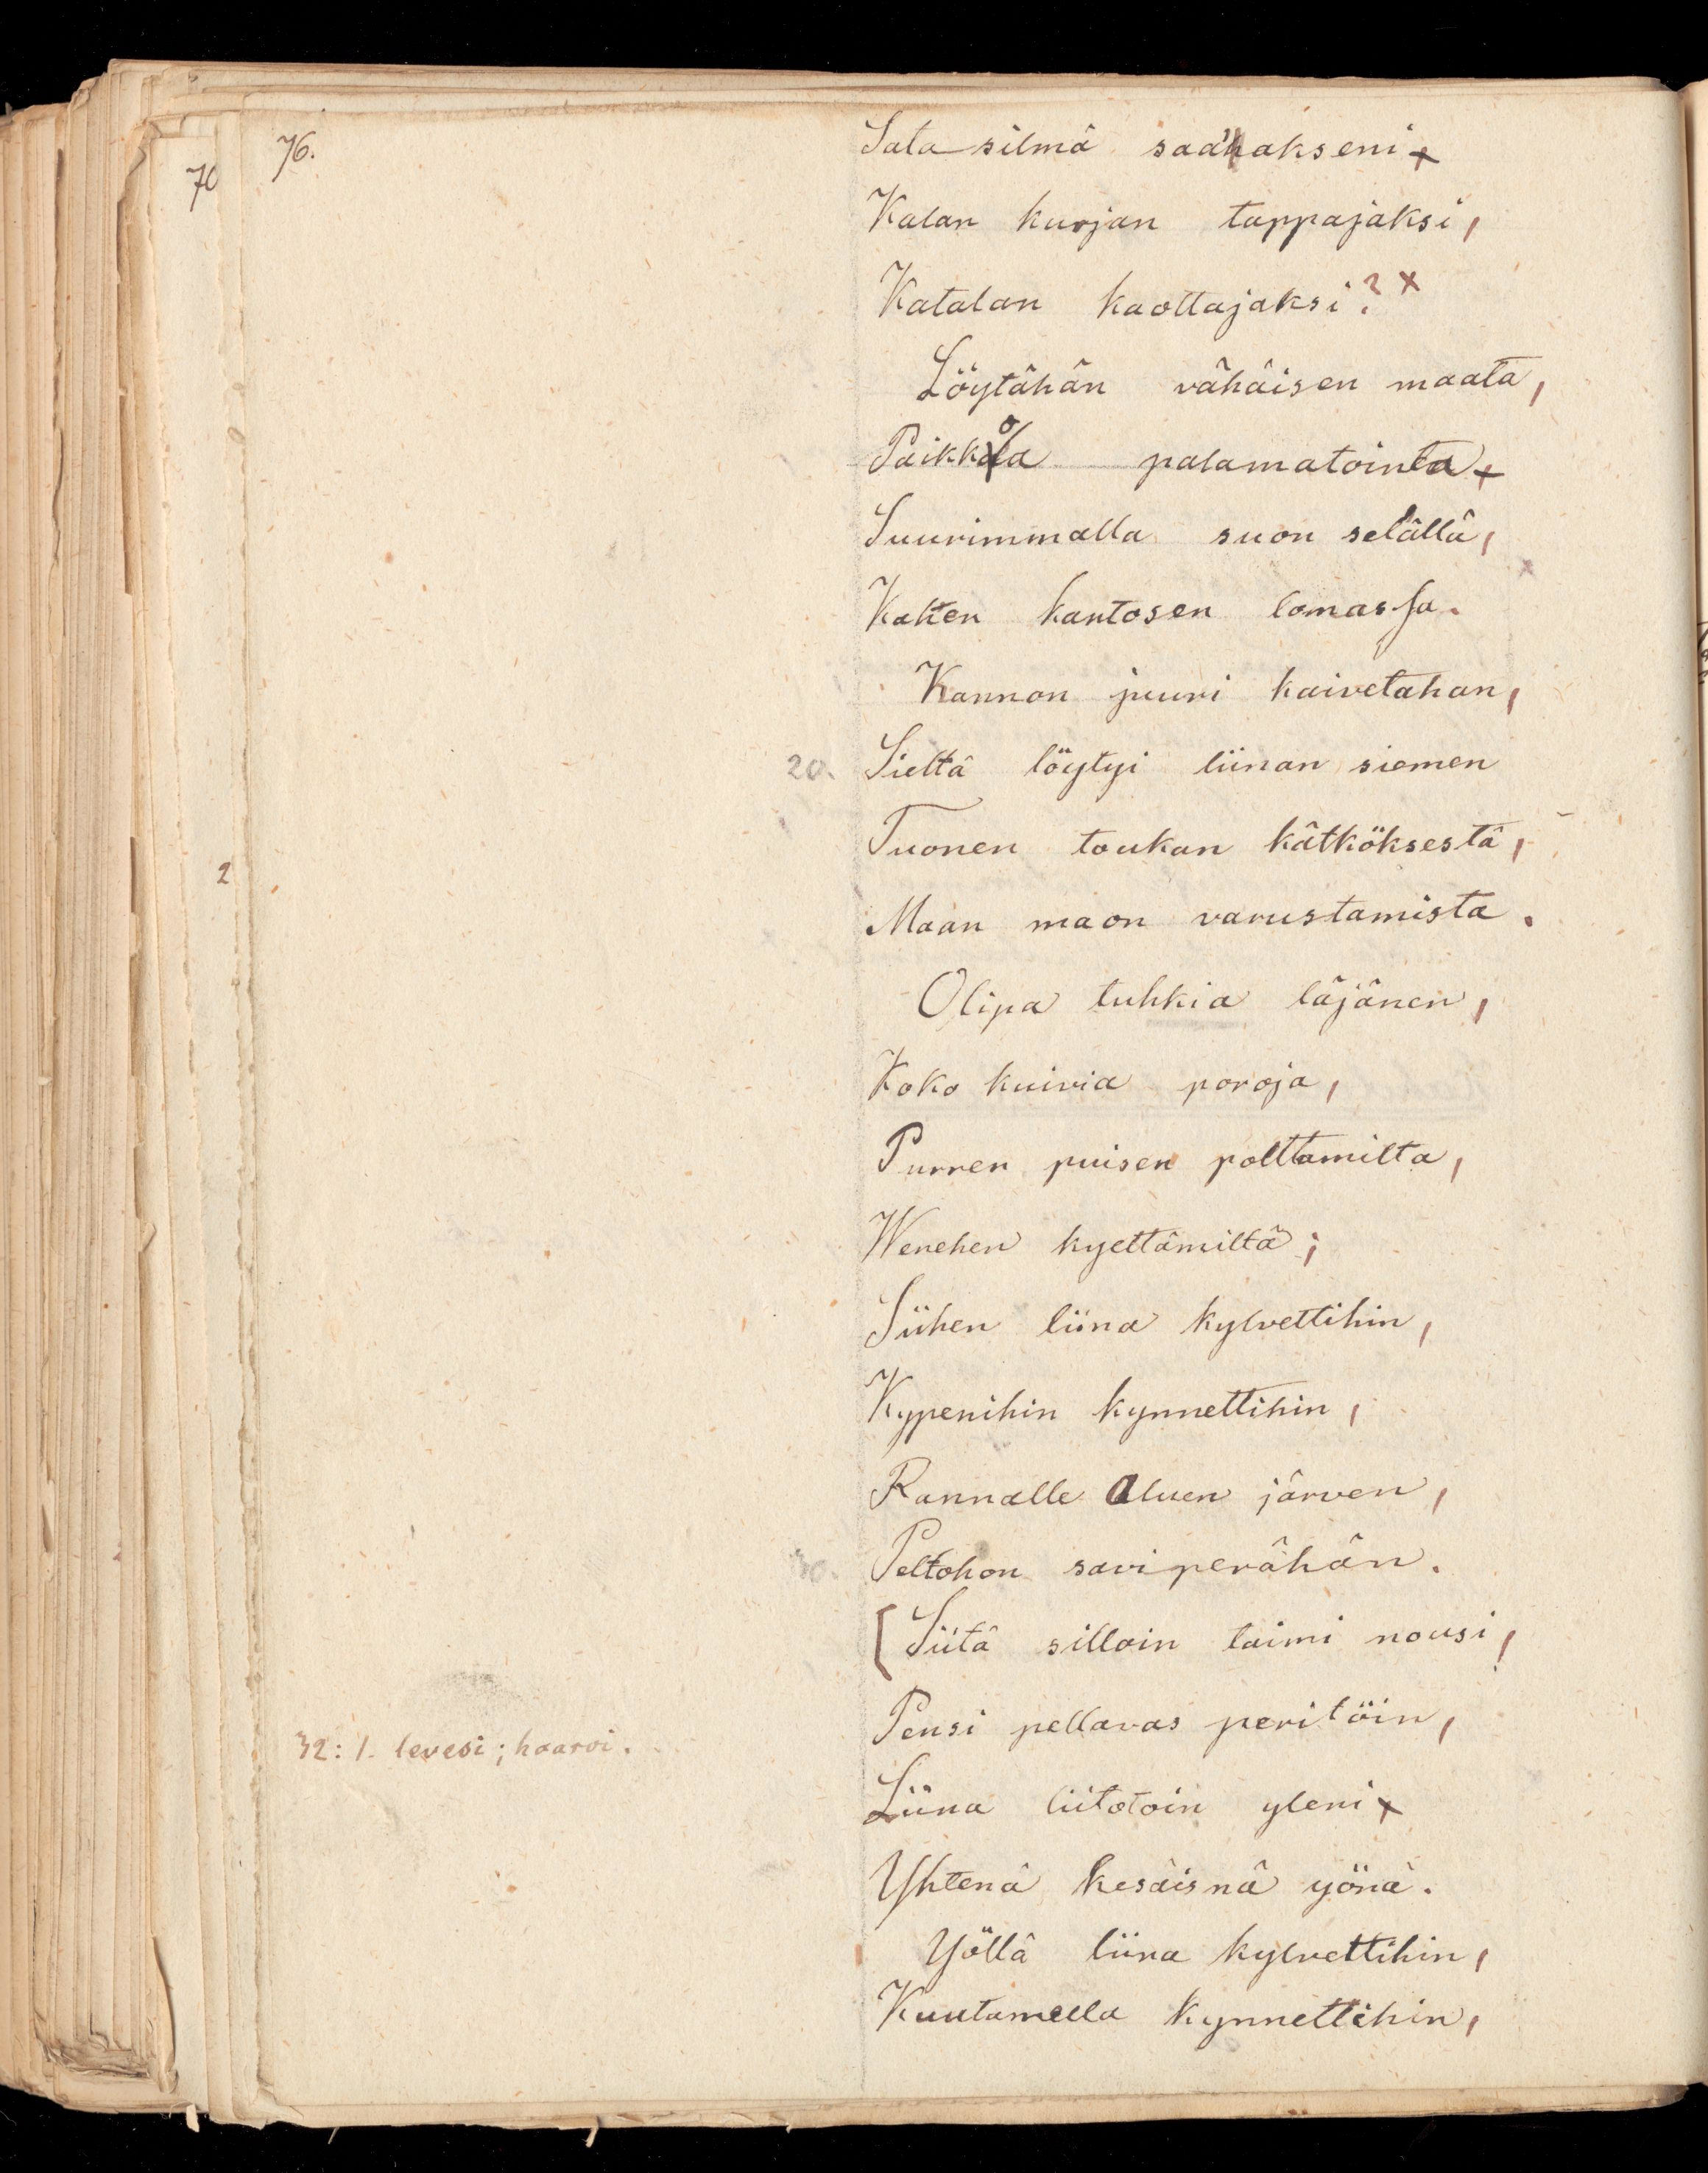 76.
70
Sata silmä saa'akseni
Kalan kurjan tappajaksi,
Katalan kaottajaksi? x
Löytähän vähäisen maata,
Paikkoa palamatointa
Suurimmalla suon selällä,
Kahen kantosen lomassa.
Kannon juuri kaivetahan,
20. Sieltä löytyi liinan siemen
Tuonen toukan kätköksestä,
2
Maan maon varustamista.
Olipa tuhkia läjänen,
Koko kuivia poroja,
Purren puisen polttamilta,
Wenehen kyettämiltä;
Siihen liina kylvettihin,
Kypenihin kynnettihin,
Rannalle Aluen järven,
30. Peltohon saviperähän.
[Siitä silloin taimi nousi,
Pensi pellavas peritöin,
32: 1. levesi; haaroi.
Liina liitotoin yleni
Yhtenä kesäisnä yönä.
Yöllä liina kylvettihin,
Kuutamella kynnettihin,